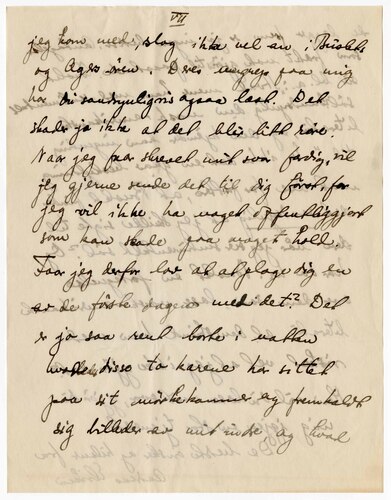 VII
jeg kom med, slog ikke vel an i Busleks
og Ages ören. Deres angrep paa mig
har du sandsynligvis ogsaa læst. Det
skader jo ikke at det blir litt röre.
Naar jeg faar skrevet mit svar færdig, vil
jeg gjerne sende det til dig först, for
jeg vil ikke ha noget offentliggjort
som kan skade paa noget hold.
Faar jeg derfor lov at plage dig en
av de förste dagene med det? Det
er jo saa rent borte i natten
disse to karene har sittet
paa sit mörkekammer og fremkaldt
sig billeder av mit indre og hvad